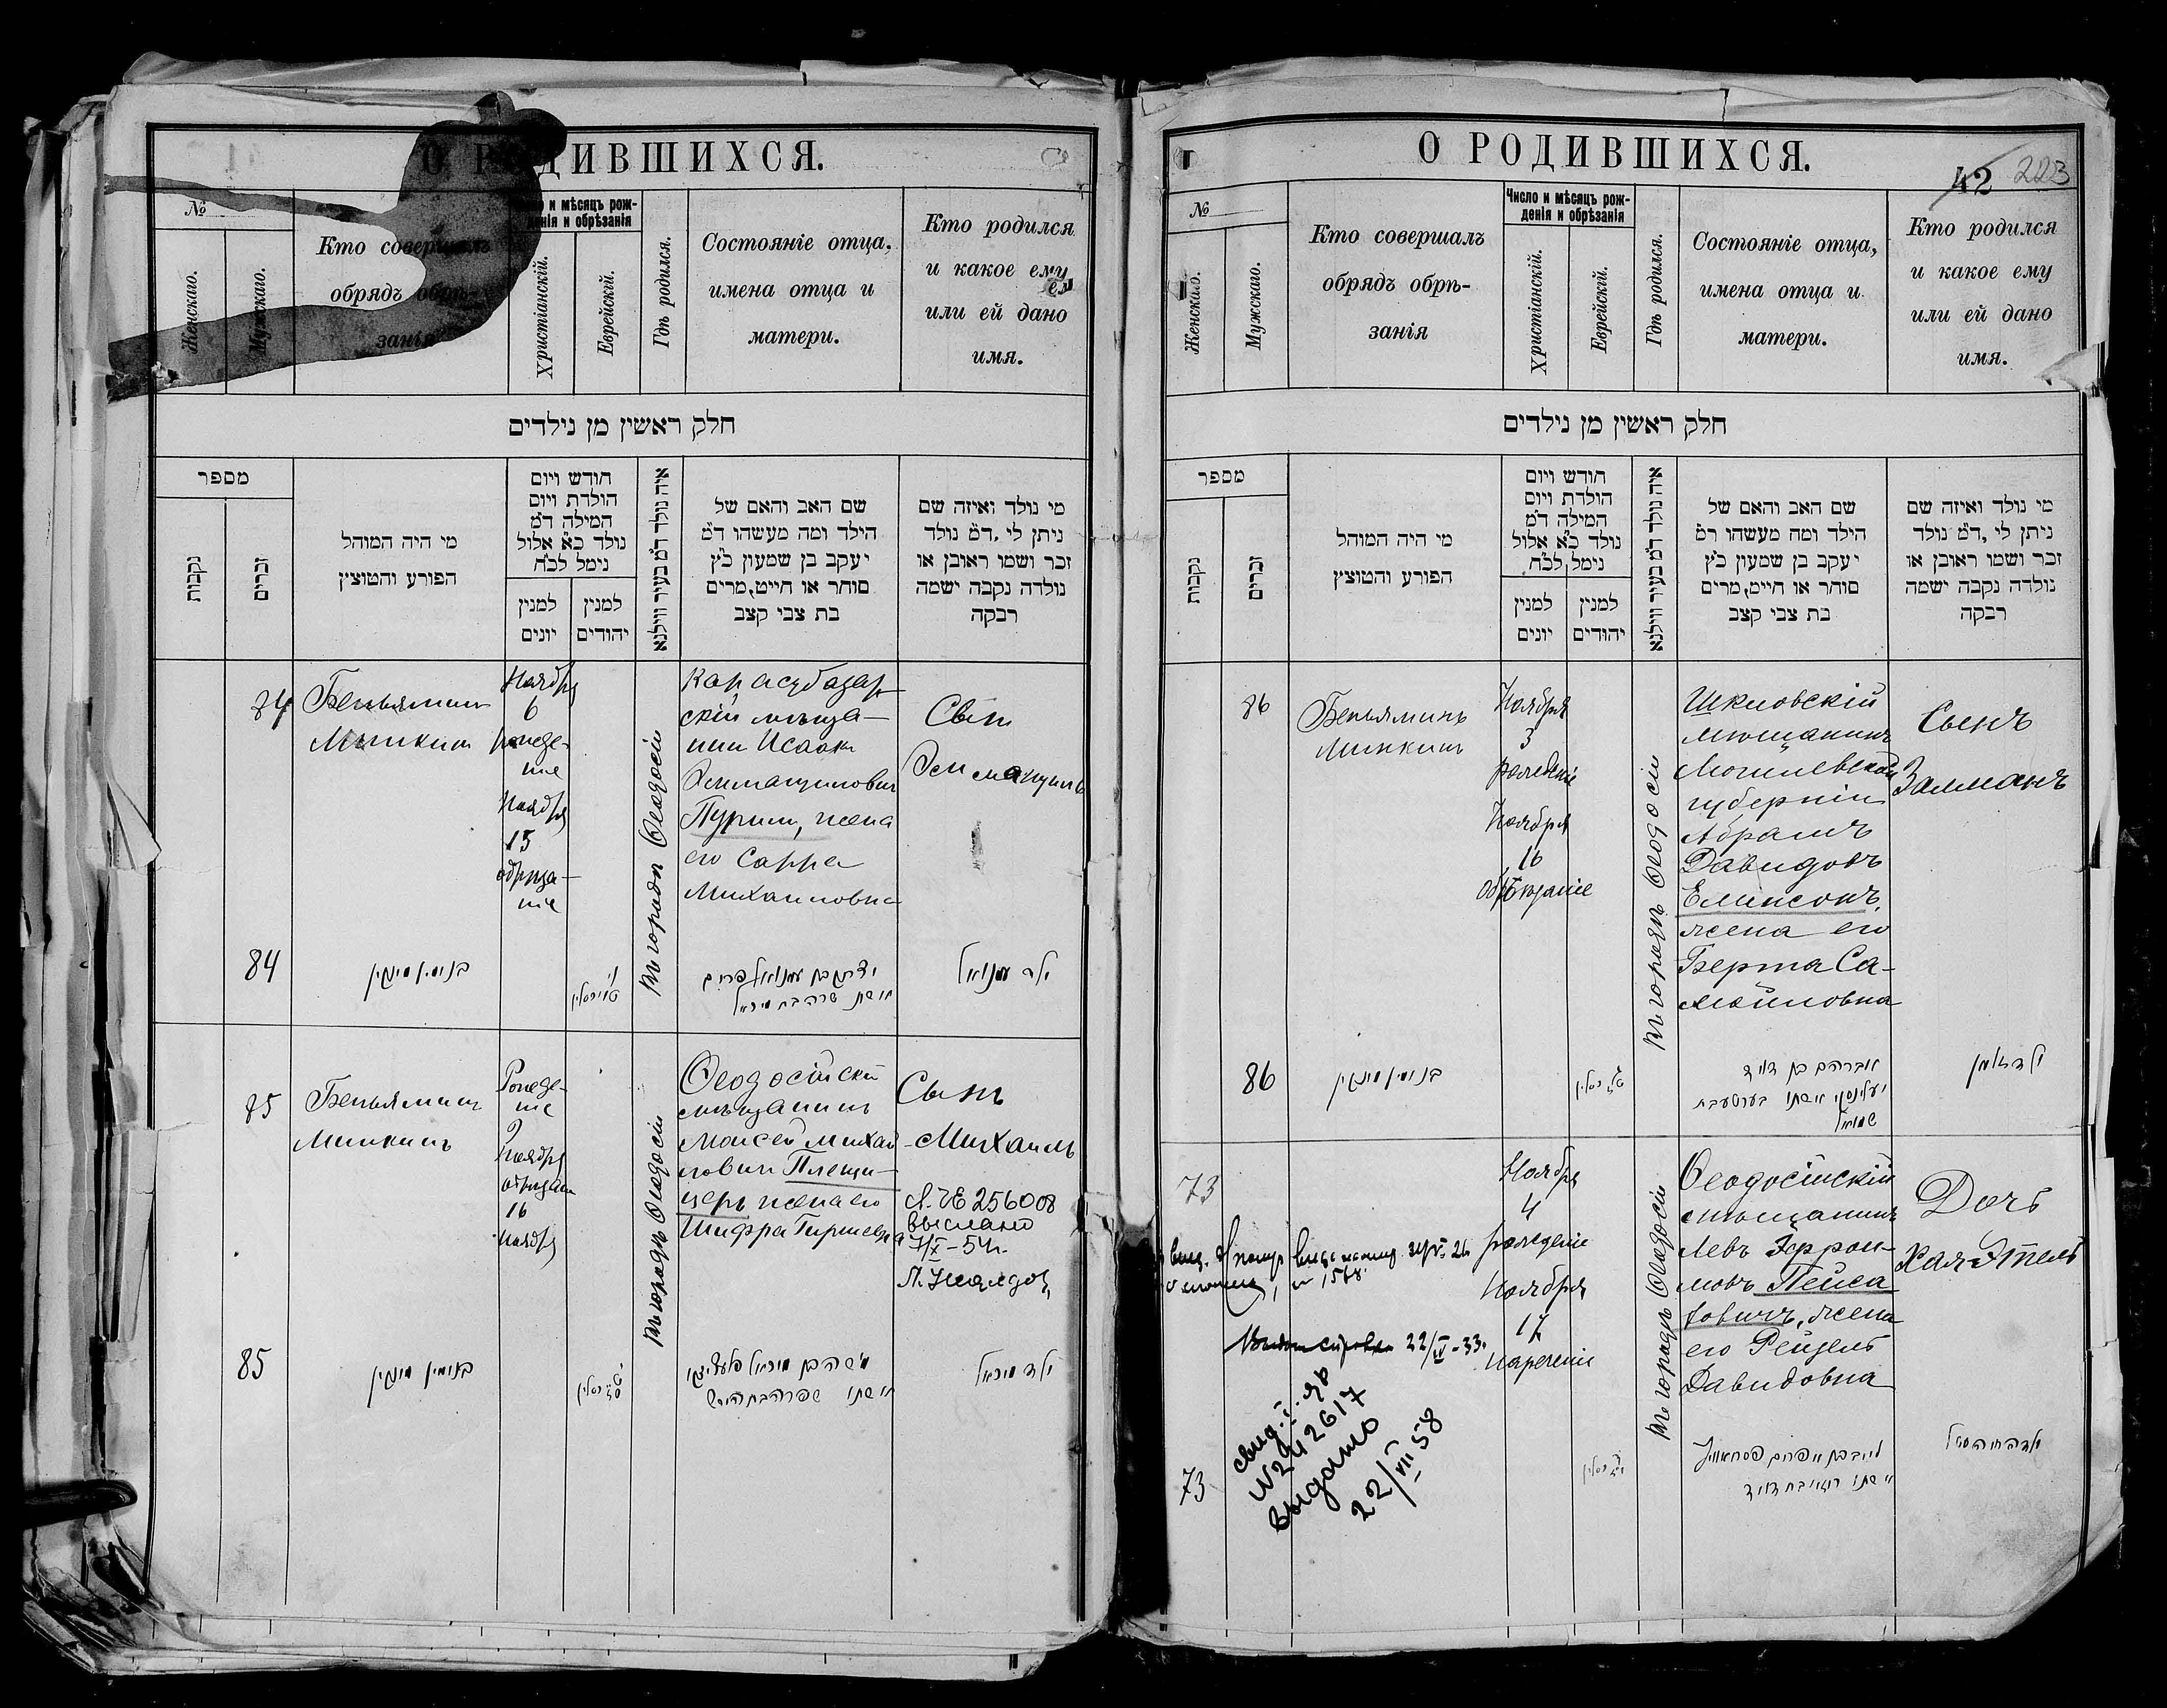 О РОДИВШИХСЯ.
№
Женскаго.
Мужскаго.
Кто совершалъ
обрядъ обрѣ-
занія
Число и мѣсяцъ рож-
денія и обрѣзанія
Христіанскій.
Еврейскій.
Гдѣ родился.
Состояніе отца,
имена отца и
матери.
Кто родился
и какое ему
или ей дано
имя.
חלק ראשין מן נילדים
מספר
נקבות
זכרים
מי היה המוהל
הפורע והטוצץ
חודש ויום
הולדת ויום
המילה ד״מ
נולד כ״א אלול
נימל לכ״ח
למנין
יונים
למנין
יהודים
איה נולד ד״מ בעיר ווילנא
שם האב והאם של
הילד ומה מעשהו ד״מ
יעקב בן שמעון כ״ץ
סוחר או חייט, מרים
בת צבי קצב
מי נולד ואיזה שם
ניתן לי, ד״מ נולד
זכר ושמו ראובן או
נולדה נקבה ישמה
רבקה
84
Беньямин
Минкин
Ноября
6
рожде-
ние
Ноября
13
обреза-
ние
въ городѣ Ѳеодосіи
Карасубазар-
скій мѣща-
нин Исаак
Эммануилович
Пурим, жена
его Сарра
Михаиловна
Сын
Эммануилъ
84
בנימין מינקין
ילד עמנואל
85
Беньямин
Минкинъ
Рожде-
ние
9
Ноября
обрезан
16
Ноября
въ городѣ Ѳеодосіи
Ѳеодосійский
мѣщанинъ
Моисей Михай
лович Плещи-
церъ жена его
Шифра Гиршевна
Сынъ
Михаилъ
256008
выслано
7/X-54г.
85
בנימין מינקין
ילד מיכאל
О РОДИВШИХСЯ.
42 223
№
Женскаго.
Мужскаго.
Кто совершалъ
обрядъ обрѣ-
занія
Число и мѣсяцъ рож-
денія и обрѣзанія
Христіанскій.
Еврейскій.
Гдѣ родился.
Состояніе отца,
имена отца и
матери.
Кто родился
и какое ему
или ей дано
имя.
חלק ראשין מן נילדים
מספר
נקבות
זכרים
מי היה המוהל
הפורע והטוצץ
חודש ויום
הולדת ויום
המילה ד״מ
נולד כ״א אלול
נימל לכ״ח
למנין
יונים
למנין
יהודים
איה נולד ד״מ בעיר ווילנא
שם האב והאם של
הילד ומה מעשהו ד״מ
יעקב בן שמעון כ״ץ
סוחר או חייט, מרים
בת צבי קצב
מי נולד ואיזה שם
ניתן לי, ד״מ נולד
זכר ושמו ראובן או
נולדה נקבה ישמה
רבקה
86
Беньяминъ
Минкинъ
Ноября
3
рожденіе
Ноября
16
обрѣзаніе
въ городѣ Ѳеодосіи
Шкловскій
мѣщанинъ
Могилевской
губерніи
Абрамъ
Давидовъ
Елинсонъ,
жена его
Берта Са-
мойловна
Сынъ
Залманъ
86
בנימין מינקין
אברהם בן דוד
שמואל
ילד זלמן
73
Ноября
4
рожденіе
Ноября
17
нареченіе
въ городѣ Ѳеодосіи
Ѳеодосійскій
мѣщанинъ
Левъ Эфрои-
мовъ Пейса
ховичъ, жена
его Рейзель
Давидовна
Дочь
Хая-Этель
22/IV-33.
свид. I. ЯР
N 242617
выдано
22/VII 58
73